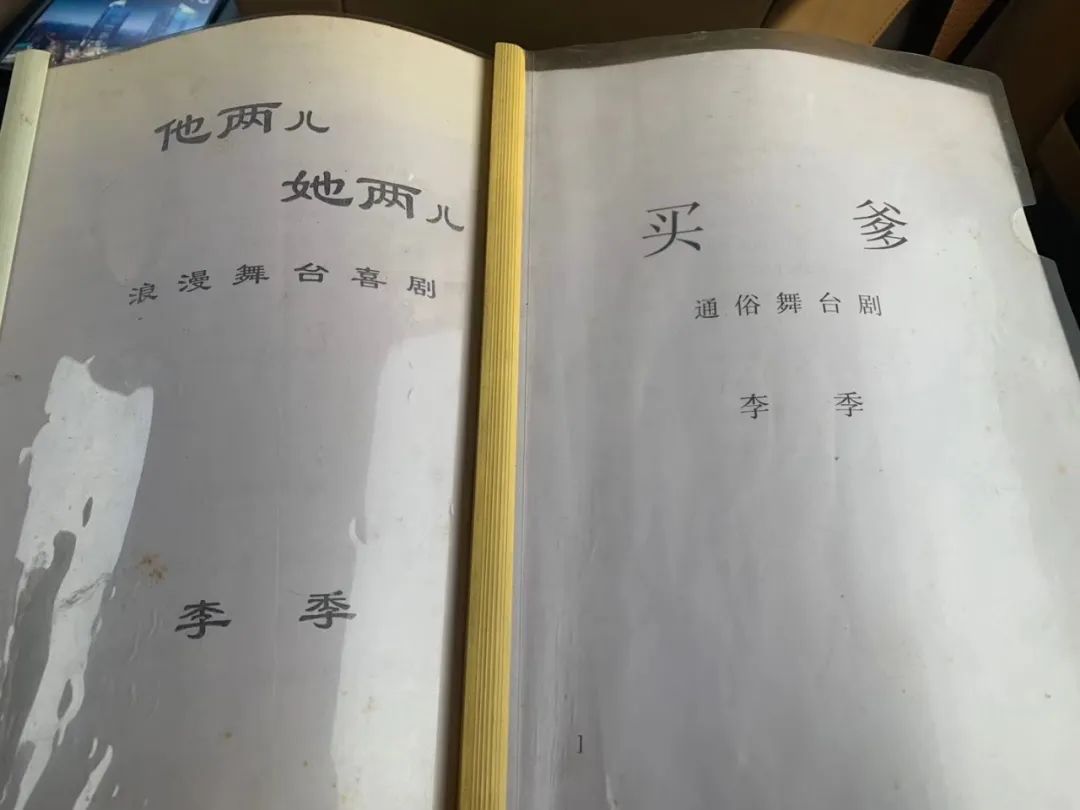 他两儿
她两儿
浪漫舞台喜剧
李季
买爹
通俗舞台剧
李季
]